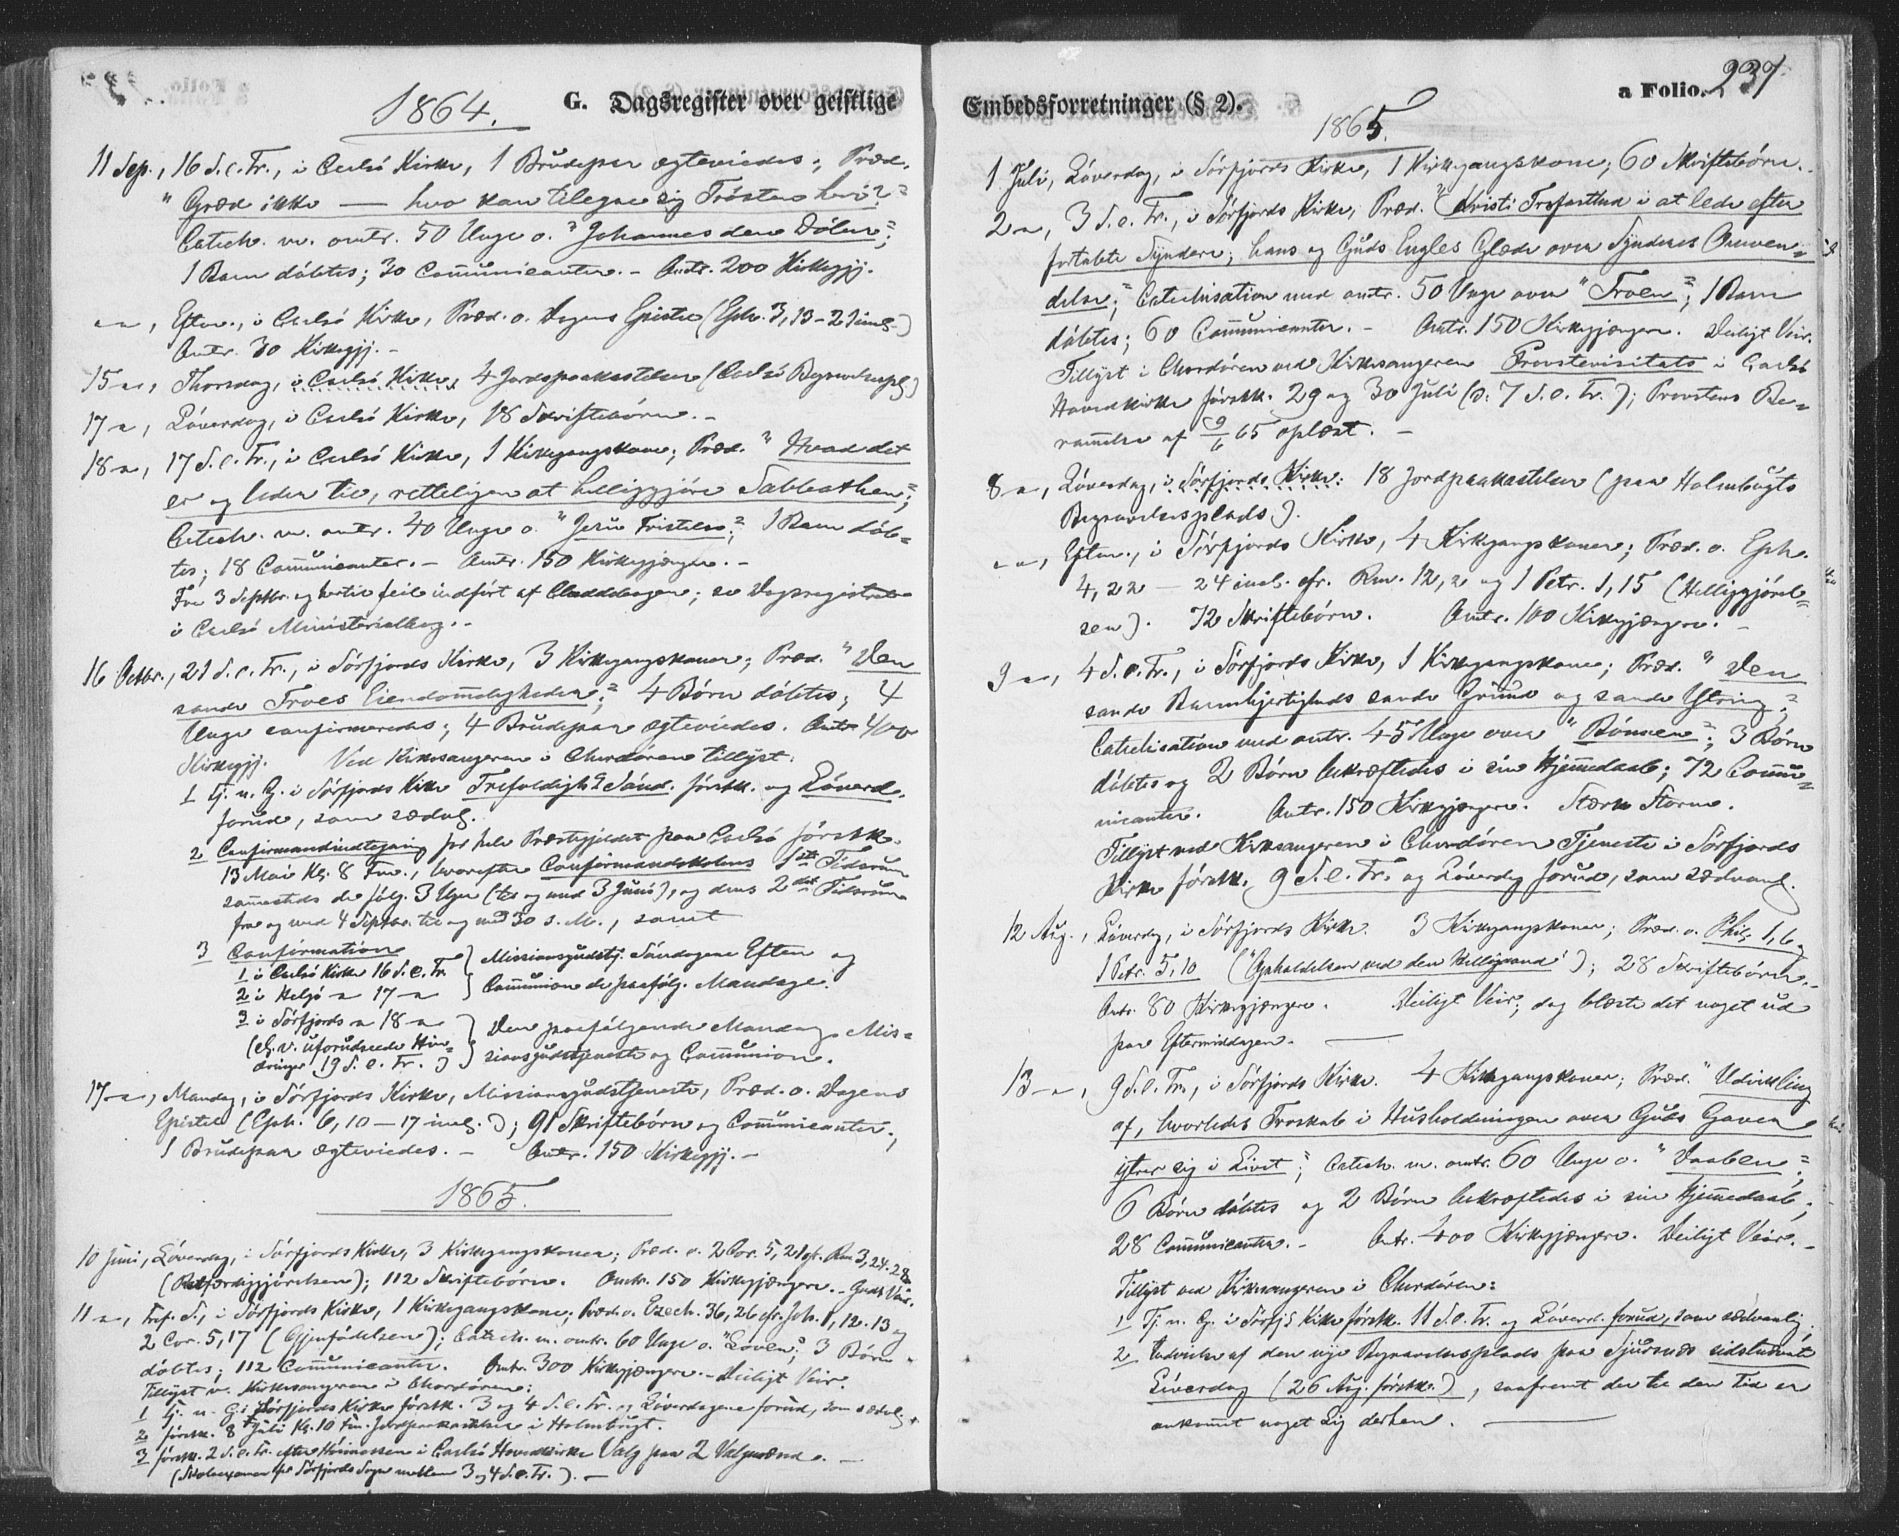 1864.
G. Dagsregister over geistlige
11 Sep., 16 S. e. Tr., i Carlsö Kirke, 1 Brudepar ægteviedes; Præd.
"Græd ikke — hvo kan tilegne sig Trösten heri?"
Catech. m. omtr. 50 Unge o. "Johannes den Döber";
1 Barn döbtes; 30 Communicanter. - Omtr. 200 Kirkegjj.
" " , Efterm., i Carlsö Kirke, Præd. o. Dagens Epistel (Eph. 3, 13-21 incl.)
Omtr. 30 Kirkegjj. -
15 " , Thorsdag, i Carlsö Kirke, 4 Jordspaakastelser (Carlsö Begravelsespl.)
17 " , Löverdag, i Carlsö Kirke, 18 Skriftebörn. -
18 " , 17 S. e. Tr., i Carlsö Kirke, 1 Kirkegangskone; Præd. "Hvad det
er og leder til, retteligen at helliggjöre Sabbathen";
Catech. m. omtr. 40 Unge o. "Jesu Fristelse"; 1 Barn döb=
tes; 18 Communicanter. - Omtr. 150 Kirkegjængere. -
Fra 3 Septbr. og hertil feil indfört af Claddebogen; se Dagsregisteret
i Carlsö Ministerialbog. -
16 Octbr., 21 S. e. Tr., i Sörfjords Kirke, 3 Kirkegangskoner; Præd. "Den
sande Troes Eiendommeligheder"; 4 Börn döbtes; 4
Unge confirmeredes; 4 Brudepar ægteviedes. Omtr. 400
Kirkegjj. Ved Kirkesangeren i Chordören tillyst:
1 Tj. n. G. i Sörfjords Kirke Trefoldigh. Sönd. förstk. og Löverd.
forud, som sædvl.
2 Confirmandindtegning for hele Præstegjeldet paa Carlsö förstk.
13 Mai Kl. 8 Fm., hvorefter Confirmandskolens 1ste Tidsrum
sammesteds de fölg. 3 Uger (til og med 3 Juni), og dens 2det Tidsrum
fra og med 4 Septbr. til og med 30 s. M., samt
3 Confirmation
1 i Carlsö Kirke 16 S. e. Tr.
2 i Helgö " 17 "
Missionsgudstj. Söndagene Efterm. og
Communion de paafölg. Mandage.
3 i Sörfjords " 18 "
(Ell. v. uforudseede Hin=
dringer 19 S. e. Tr.)
Den paafölgende Mandag Mis=
sionsgudstjeneste og Communion.
17 " , Mandag, i Sörfjords Kirke, Missionsgudstjeneste, Præd. o. Dagens
Epistel (Eph. 6, 10-17 incl.); 91 Skriftebörn og Communicanter;
1 Brudepar ægteviedes. - Omtr. 150 Kirkegjj. -
1865.
10 Juni, Löverdag, i Sörfjords Kirke, 3 Kirkegangskoner; Præd. o. 2 Cor. 5, 21 cfr. Rm 3, 24-28
(Retfærdiggjörelsen); 112 Skriftebörn. Omtr. 150 Kirkegjængere. - Godt Veir.
11 " , Tref. S., i Sörfjords Kirke, 1 Kirkegangskone; Præd. o. Ezech. 36, 26 cfr. Joh. 1, 12-13 og
2 Cor. 5, 17 (Gjenfödelsen); Catech. m. omtr. 60 Unge o. "Loven"; 3 Börn
döbtes; 112 Communicanter. Omtr. 300 Kirkegjængere. - Deiligt Veir.
Tillyst v. Kirkesangeren i Chordören:
1 Tj. n. G. i Sörfjords Kirke förstk. 3 og 4 S. e. Tr. og Löverdagene forud, som sædvl.
2 förstk. 8 Juli Kl. 10 Fm. Jordpaakastelse i Holmbugt.
3 förstk. 2 S. e. Tr. efter Höimessen i Carlsö Hovedkirke Valg paa 2 Valgmænd. -
(Skoleexamen for Sörfjords Sogn mellem 3 og 4 S. e. Tr.). -
Embedsforretninger (§ 2).
a Folio. 237
1865.
1 Juli, Löverdag, i Sörfjords Kirke, 1 Kirkegangskone; 60 Skriftebörn.
2 " , 3 S. e. Tr., i Sörfjords Kirke, Præd. "Christi Trofasthed i at lede efter
fortabte Syndere; hans og Guds Engles Glæde over Synderes Omven=
delse;" Catechisation med omtr. 50 Unge over "Troen"; 1 Barn
döbtes; 60 Communicanter. - Omtr. 150 Kirkegjængere. Deiligt Veir.
Tillyst i Chordören ved Kirkesangeren Provstevisitats i Carlsö
Hovedkirke förstk. 29 og 30 Juli (o: 7 S. e. Tr.); Provstens Be=
rammelse af 9/6 65 oplæst. -
8 " , Löverdag, i Sörfjords Kirke: 18 Jordpaakastelser (paa Holmbugts
Begravelsesplads).
" " , Efterm., i Sörfjords Kirke, 4 Kirkegangskoner; Præd. o. Eph.
4, 22 - 24 incl. cfr. Rm. 12, 2 og 1 Petr. 1, 15 (Helliggjörel=
sen). 72 Skriftebörn. Omtr. 100 Kirkegjængere. -
9 " , 4 S. e. Tr., i Sörfjords Kirke, 1 Kirkegangskone; Præd. "Den
sande Barmhjertigheds sande Grund og sande Yttring";
Catechisation med omtr. 45 Unge over "Bönnen"; 3 Börn
döbtes og 2 Börn bekræftedes i sin Hjemmedaab; 72 Commu=
nicanter. Omtr. 150 Kirkegjængere. Stærk Storm.
Tillyst ved Kirkesangeren i Chordören Tjeneste i Sörfjords
Kirke förstk. 9 S. e. Tr. og Löverdag forud, som sædvanl.
12 Aug., Löverdag, i Sörfjords Kirke. 3 Kirkegangskoner; Præd. o. Phil. 1, 6 og
1 Petr. 5, 10 ("Opholdelsen ved den Helligaand"); 28 Skriftebörn. -
Omtr. 80 Kirkegjængere. Deiligt Veir; dog blæste det noget ud
paa Eftermiddagen. —
13 " , 9 S. e. Tr., i Sörfjords Kirke. 4 Kirkegangskoner; Præd. "Udvikling
af, hvorledes Troskab i Husholdningen over Guds Gaver
yttrer sig i Livet"; Catech. m. omtr. 60 Unge o. "Daaben";
6 Börn döbtes og 2 Börn bekræftedes i sin Hjemmedaab;
28 Communicanter. - Omtr. 400 Kirkegjængere. Deiligt Veir. -
Tillyst ved Kirkesangeren i Chordören:
1 Tj. n. G. i Sörfj. Kirke förstk. 11 S. e. Tr. og Löverd. forud, som sædvanlig.
2 Indvielse af den nye Begravelsesplads paa Sjursnæs sidstnævnte
Löverdag (26 Aug. förstk.), saafremt der til den Tid er
ankommet noget Lig derhen. —